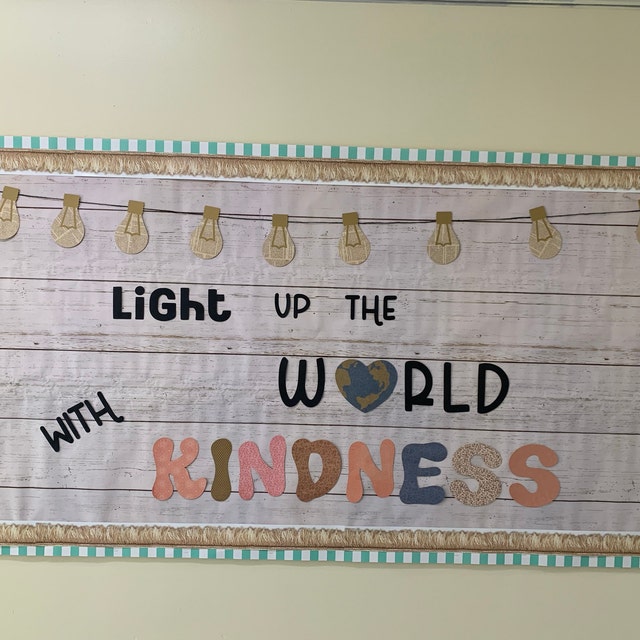 LiGht UP THE
WORLD
WITH
KINDNESS